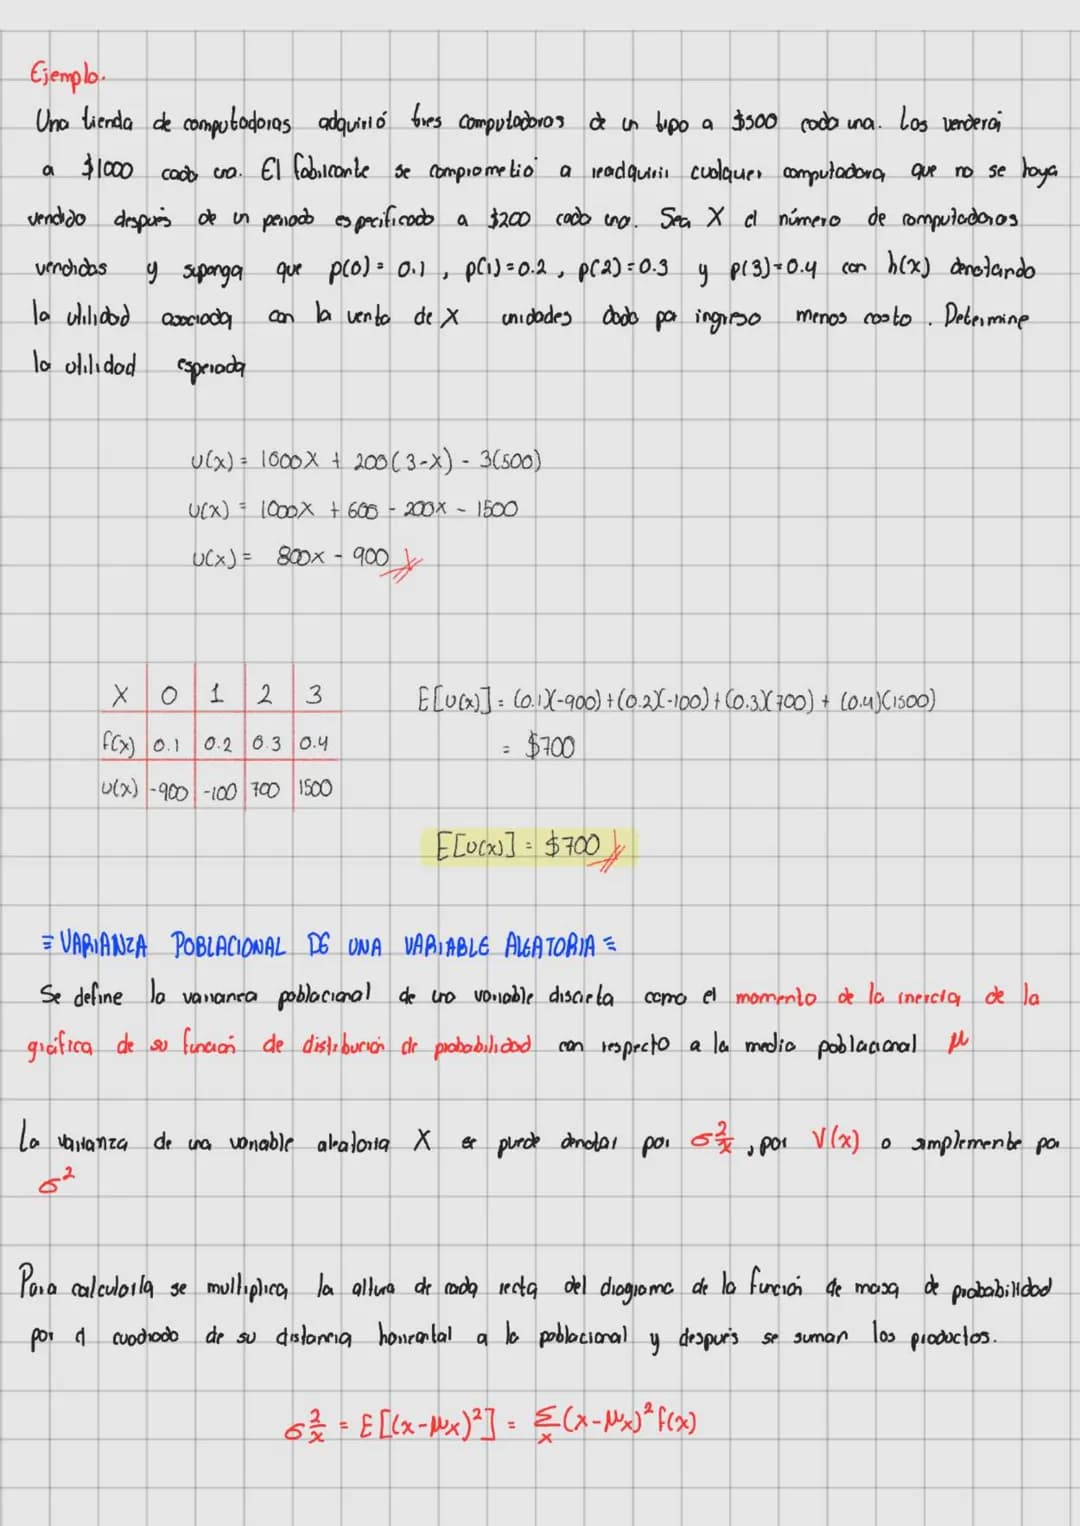 Ejemplo.
Una tienda de computadoras adquirió tres computadoras de un tipo a $500 cada una. Las venderá
a $1000 cada una. El fabricante se comprometió a readquirir cualquier computadora que no se haya
vendido después de un periodo especificado a $200 cada una. Sea X el número de computadoras
vendidas y suponga que p(0) = 0.1, p(1) = 0.2, p(2) = 0.3 y p(3) = 0.4 con h(x) denotando
la utilidad asociada con la venta de X unidades dado por ingreso menos costo. Determine
la utilidad esperada
U(x) = 1000X + 200(3-X) - 3(500)
U(x) = 1000X + 600 - 200X - 1500
U(x) = 800x - 900
X 0 1 2 3
f(x) 0.1 0.2 0.3 0.4
U(x) -900 -100 700 1500
E[U(x)] = (0.1)(-900) + (0.2)(-100) + (0.3)(700) + (0.4)(1500)
= $700
E[U(x)] = $700
= VARIANZA POBLACIONAL DE UNA VARIABLE ALEATORIA =
Se define la varianza poblacional de una variable discreta como el momento de la inercia de la
gráfica de su función de distribución de probabilidad con respecto a la media poblacional μ
La varianza de una variable aleatoria X se puede denotar por σ²ₓ, por V(x) o simplemente por
σ²
Para calcularla se multiplica la altura de cada recta del diagrama de la función de masa de probabilidad
por el cuadrado de su distancia horizontal a la poblacional y después se suman los productos.
σ²ₓ = E[(x-μx)²] = Σₓ(x-μx)² f(x)